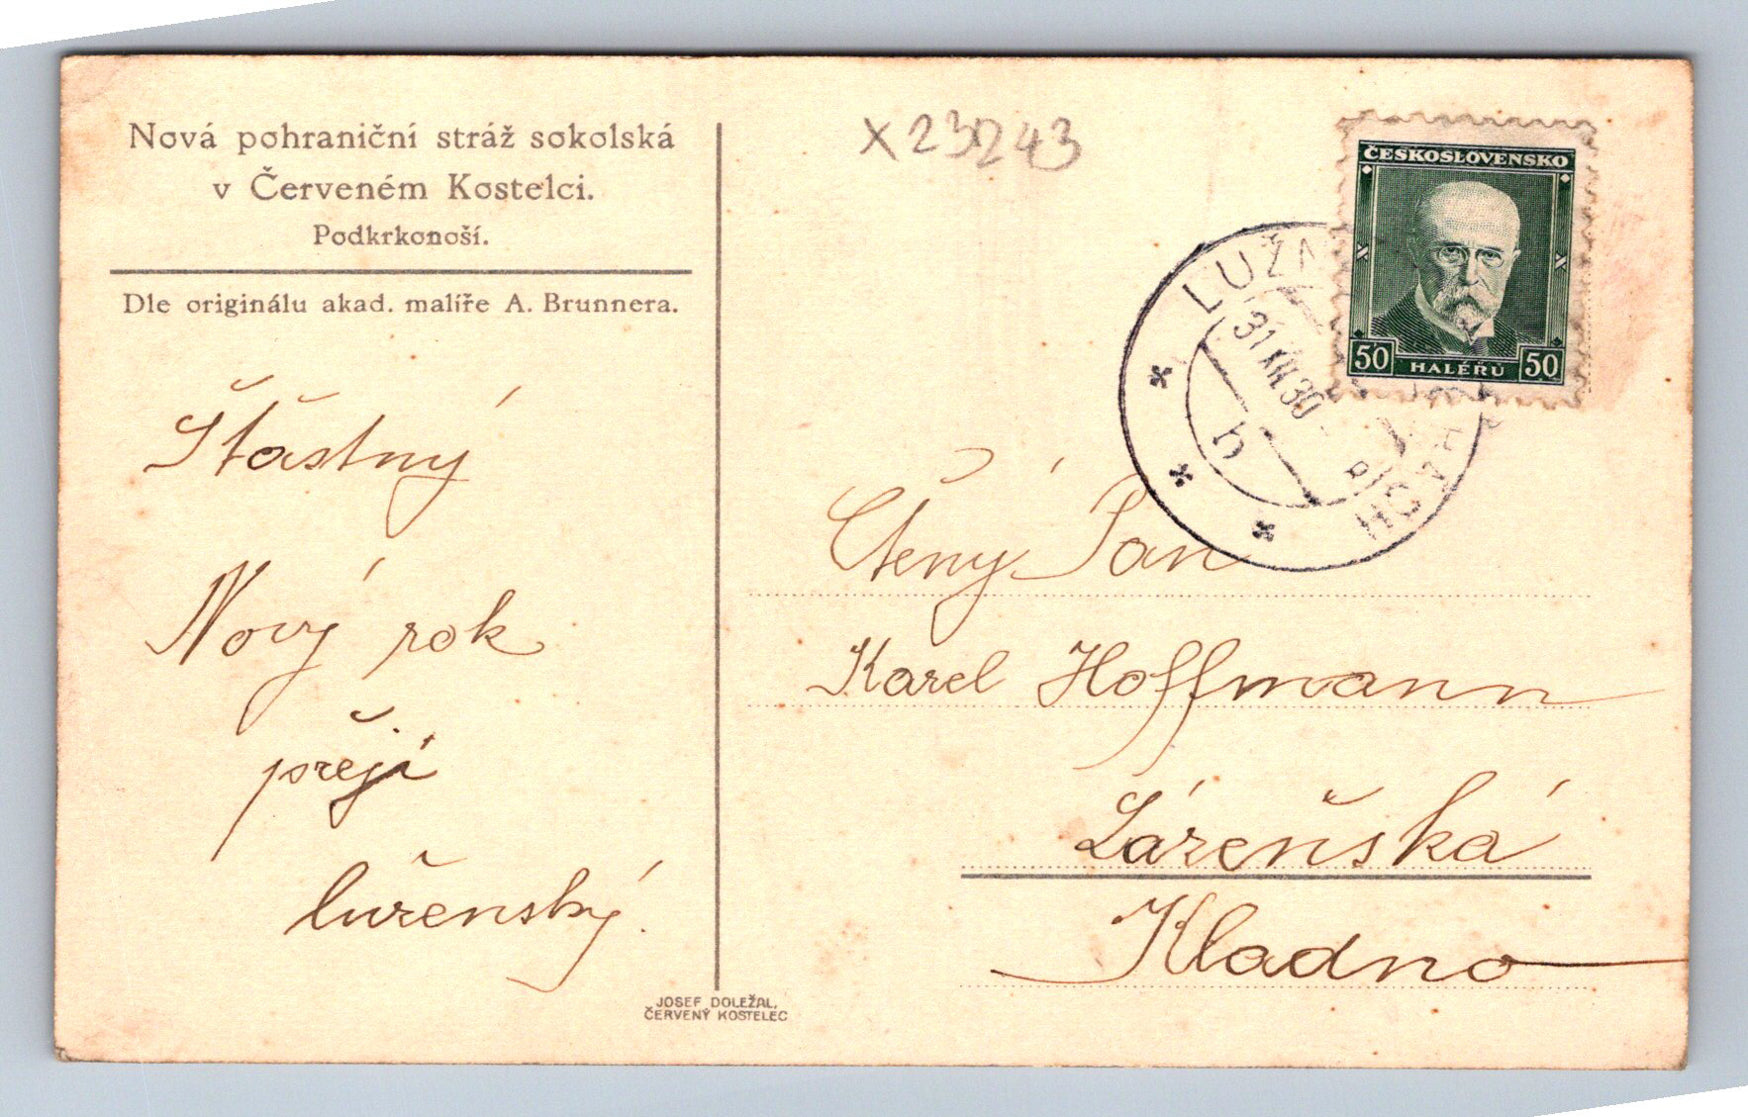 Nová pohraniční stráž sokolská
v Červeném Kostelci.
Podkrkonoší.
Dle originálu akad. malíře A. Brunnera.
Šťastný
Nový rok
přeji
X 23243
ČESKOSLOVENSKO
50 HALÉŘŮ 50
31 XII 30
Ctěný Pan
Karel Hoffmann
Kladno
JOSEF DOLEŽAL,
ČERVENÝ KOSTELEC